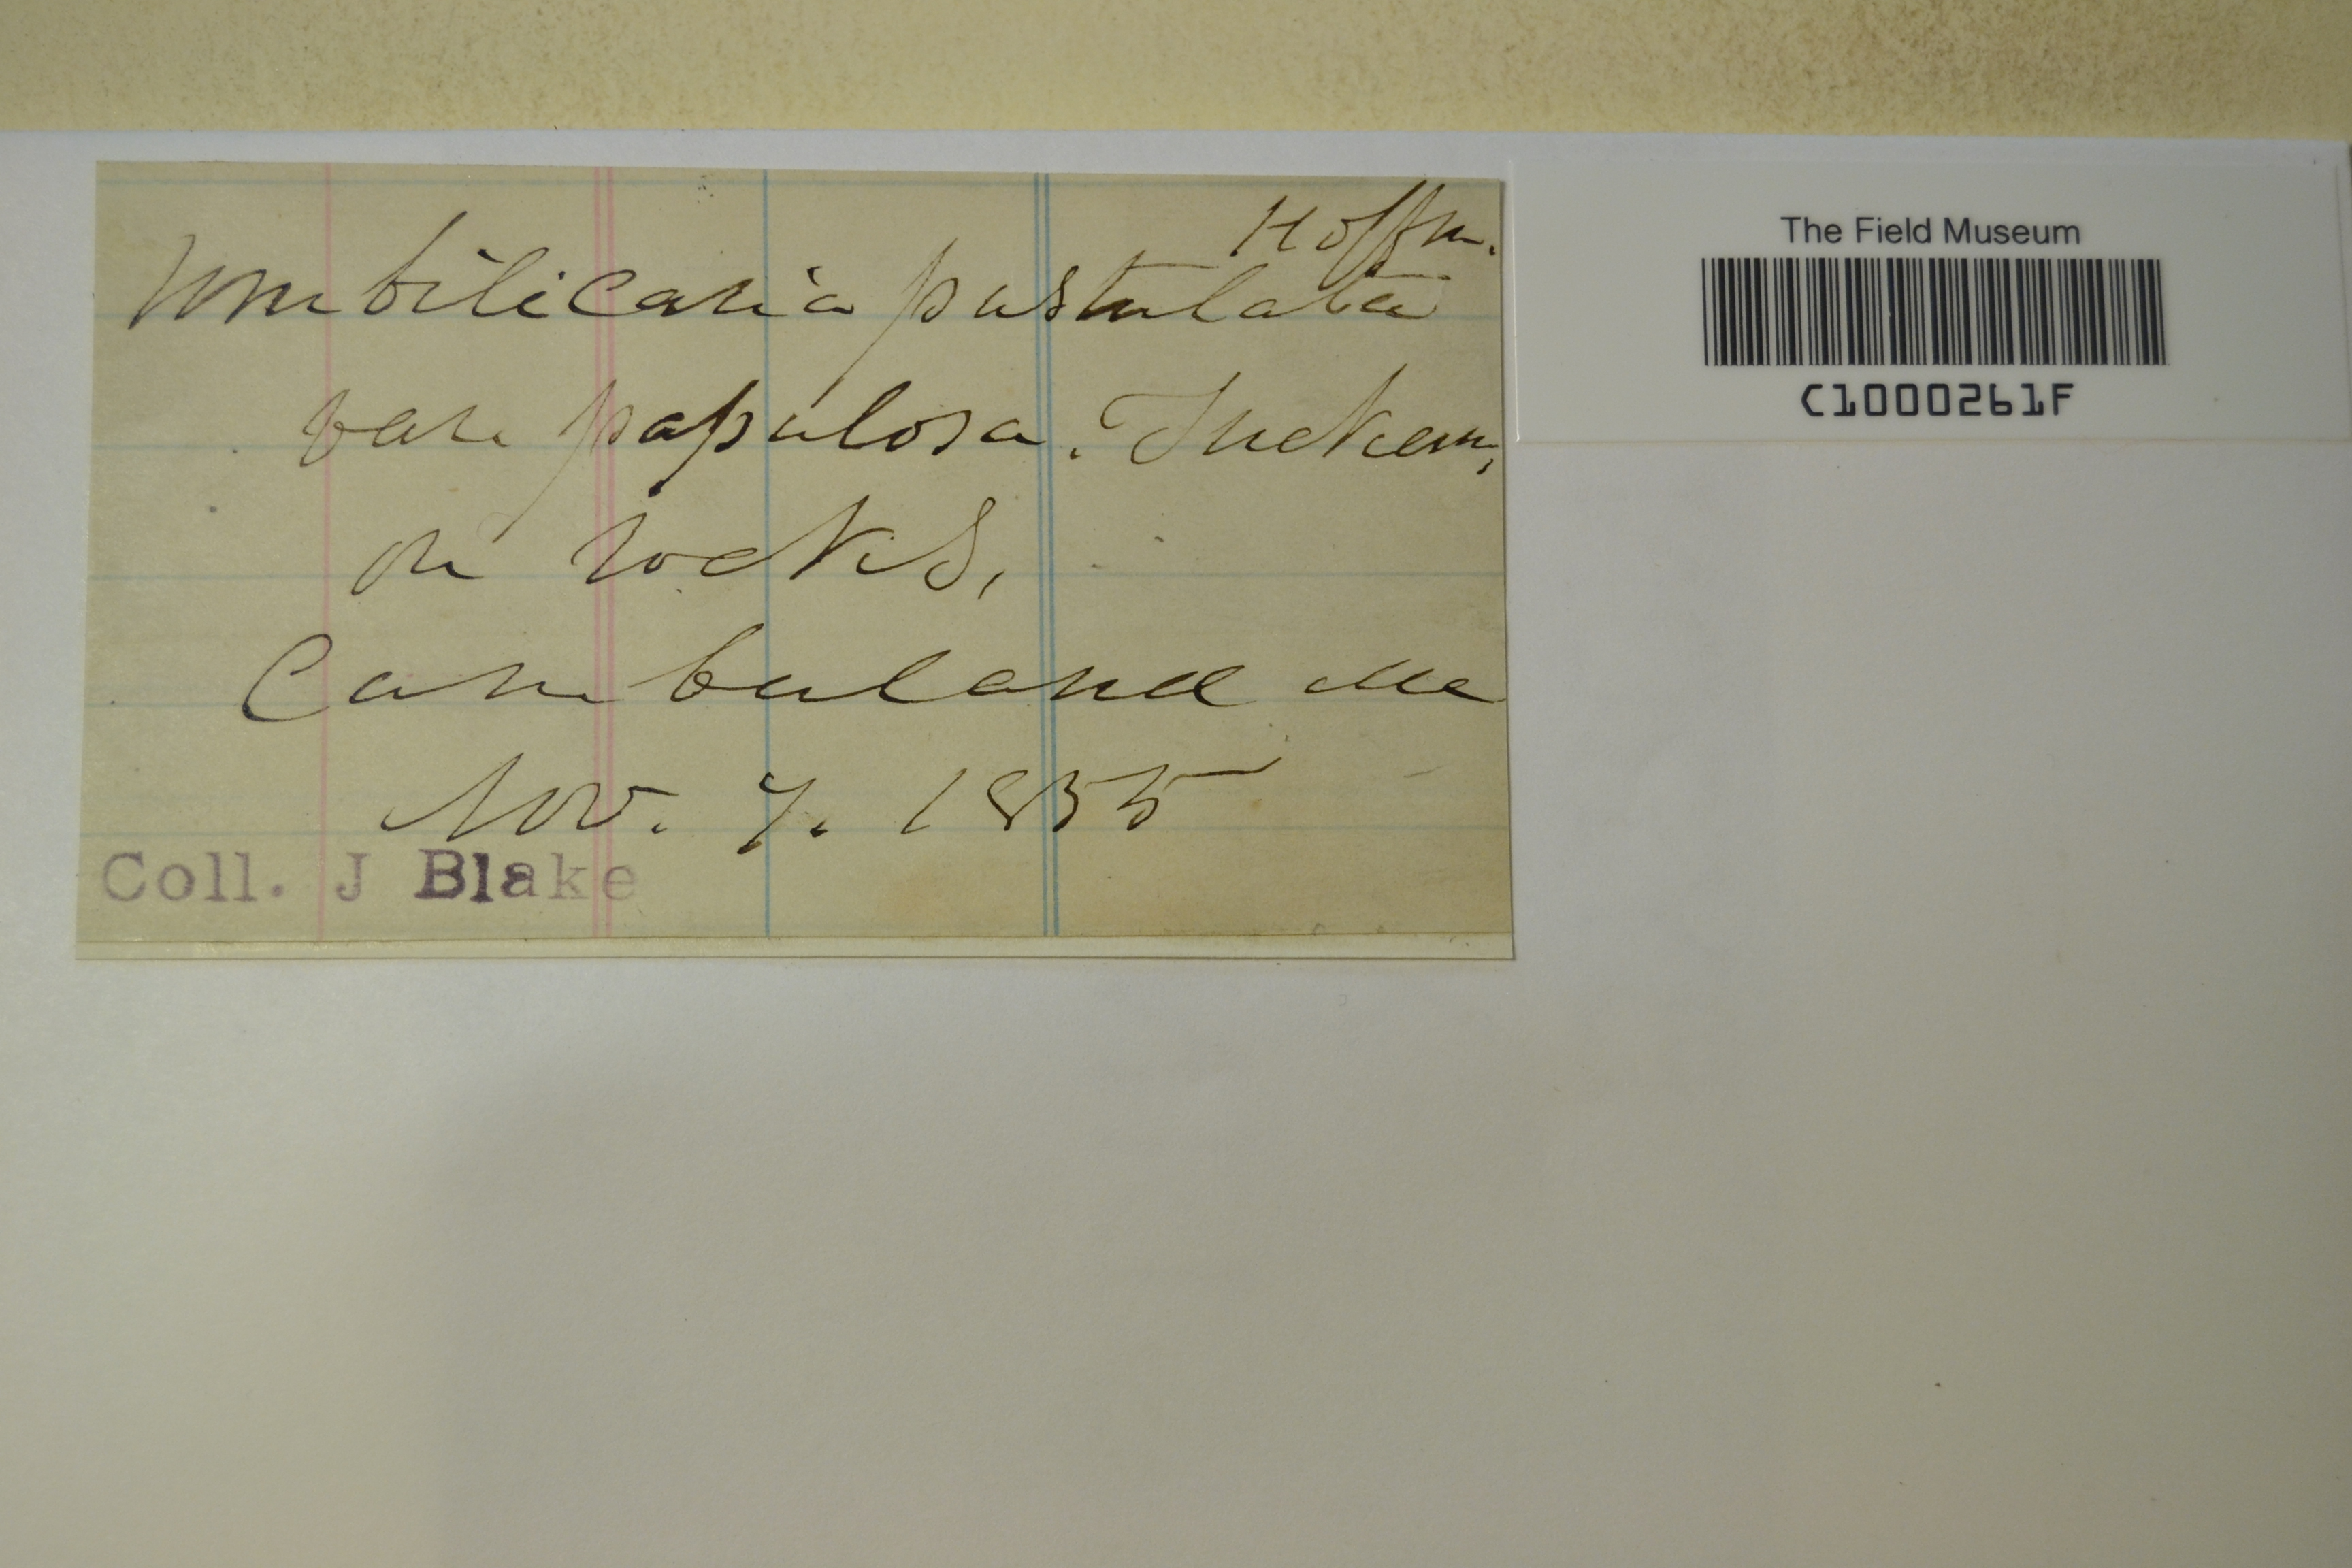 Hoffm.
Umbilicaria pustulata
var papulosa. Tuckerm,
on rocks,
Cumberland Me
Nov. 7. 1855
Coll. J Blake
The Field Museum
C1000261F